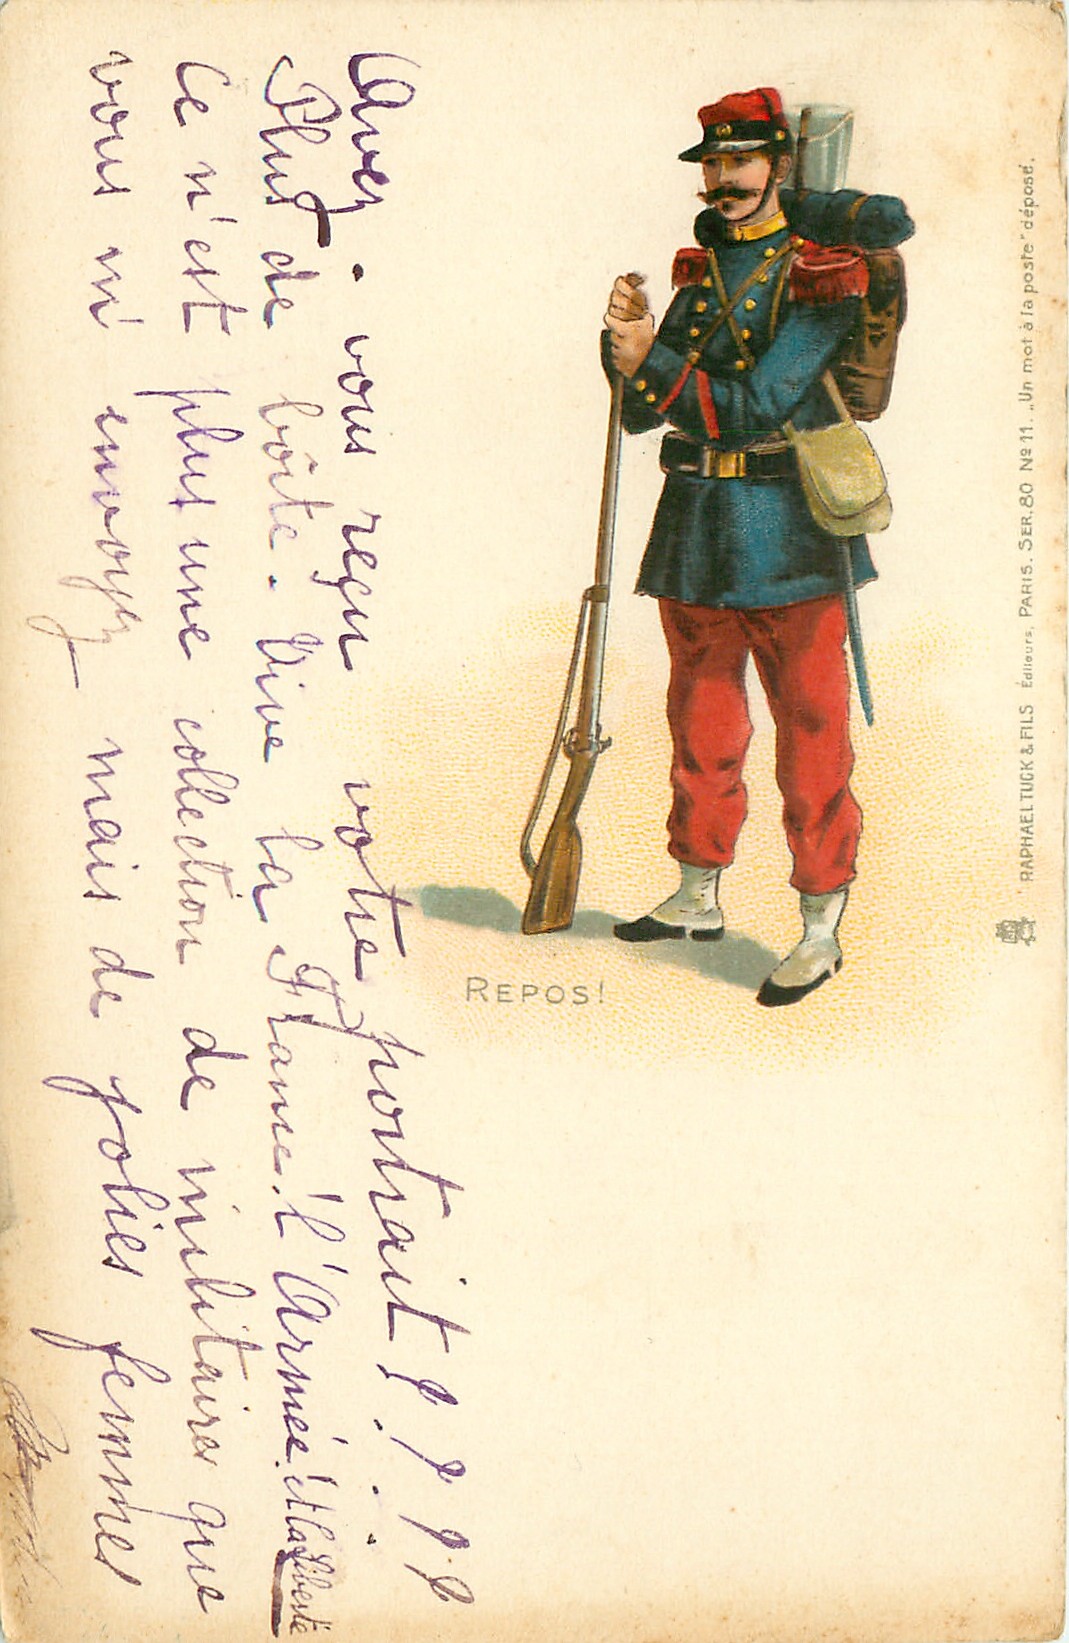 Avez-vous reçu votre portrait ? ? ?
Plus de boîte. Vive la France! l'Armée! et la Liberté
Ce n'est plus une collection de militaires que
vous m'envoyez mais de jolies femmes
REPOS!
RAPHAEL TUCK & FILS Éditeurs, PARIS. SER. 80 No 11. „Un mot à la poste" déposé.